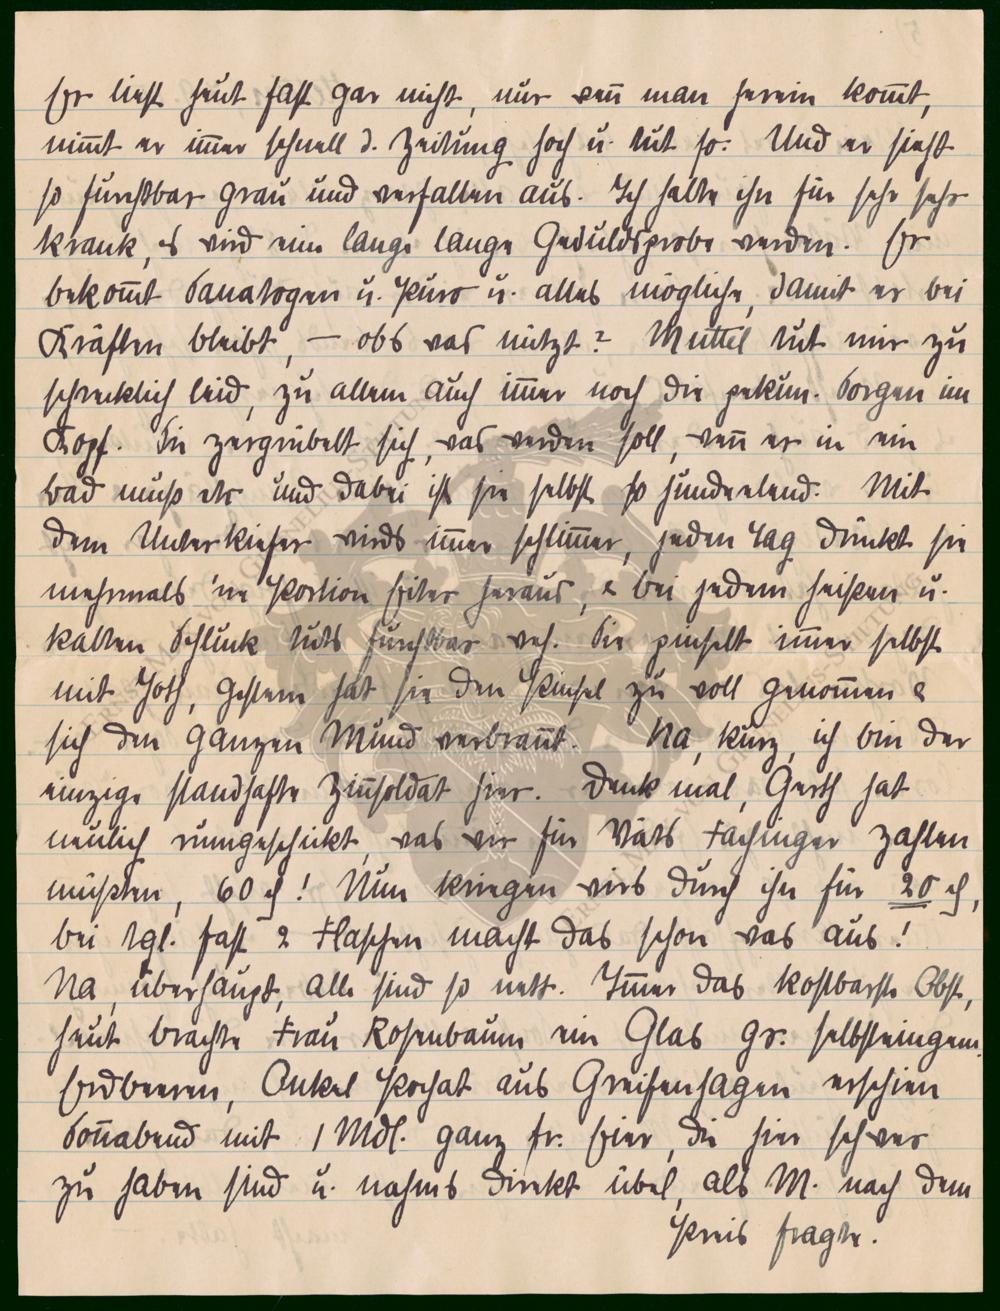 Er liest heut fast gar nicht, nur wen̄ man herein kom̄t,
nim̄t er im̄er schnell d. Zeitung hoch u. tut so. Und er sieht
so furchtbar grau und verfallen aus. Ich halte ihn für sehr sehr
krank, es wird eine lange lange Geduldsprobe werden. Er
bekom̄t Sanatogen u. Puro u. alles mögliche, damit er bei
Kräften bleibt, – obs was nützt? Muttel tut mir zu
schrecklich leid, zu allem auch im̄er noch die pekun. Sorgen im
Kopf. Sie zergrübelt sich, was werden soll, wen̄ er in ein
Bad muß etc und dabei ist sie selbst so hundeelend. Mit
dem Unterkiefer wirds im̄er schlim̄er, jeden Tag drückt sie
mehrmals 'ne Portion Eiter heraus, & bei jedem heißen u.
kalten Schluck tuts furchtbar weh. Sie pinselt im̄er selbst
mit Jod, gestern hat sie den Pinsel zu voll genom̄en &
sich den ganzen Mund verbran̄t. Na, kurz, ich bin der
einzige standhafte Zin̄soldat hier. Denk mal, Gerth hat
neulich rumgeschickt, was wir für Väts Fachinger zahlen
müßten, 60 ₰! Nun kriegen wirs durch ihn für 20 ₰,
bei tgl. fast 2 Flaschen macht das schon was aus!
Na, überhaupt, alle sind so nett. Im̄er das kostbarste Obst,
heut brachte Frau Rosenbaum ein Glas gr. selbsteingem.
Erdbeeren, Onkel Pochat aus Greifenhagen erschien
Son̄abend mit 1 Mdl. ganz fr. Eier, die hier schwer
zu haben sind u. nahms direkt übel, als M. nach dem
Preis fragte.